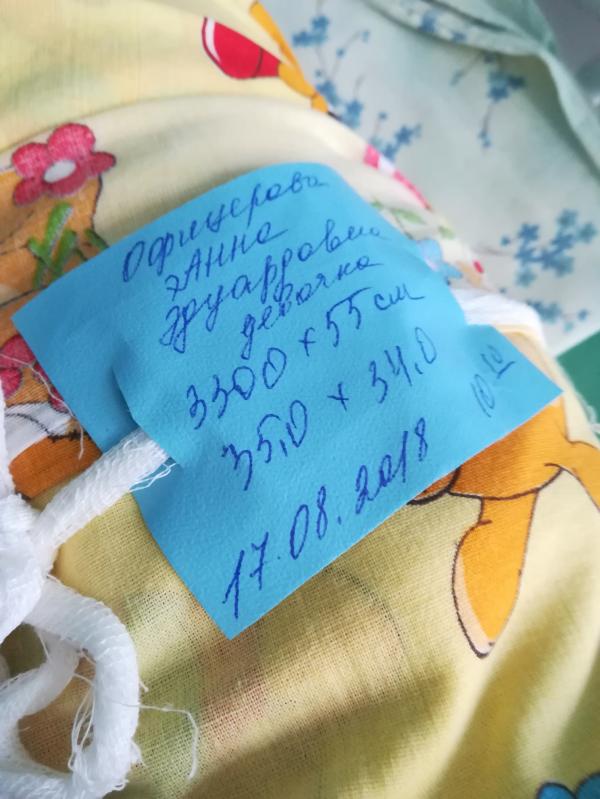 Офицерова
Анна
Эдуардовна
девочка
3300 х 55 см
35,0 х 34,0
17.08.2018 10 10